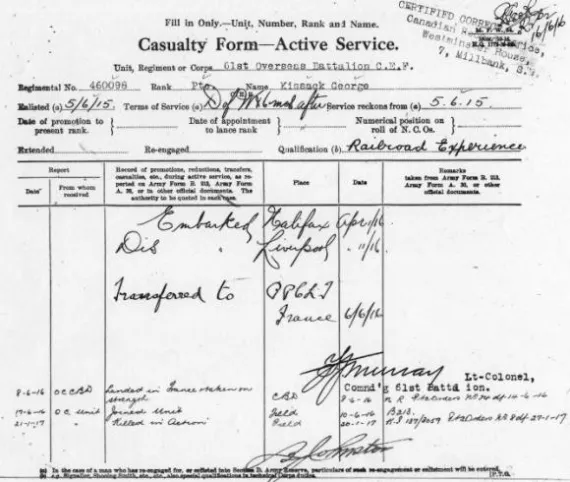 Fill in Only.—Unit, Number, Rank and Name.
CERTIFIED CORRECT
Canadian
Westminster House,
7, Millbank, S.W.
6/6/16
Casualty Form—Active Service.
Unit, Regiment or Corps 61st Overseas Battalion C.E.F.
Regimental No. 460096 Rank Pte. Name Kissack George
Enlisted (a) 5/6/15. Terms of Service (a) D of W & 6 mos after Service reckons from (a) 5.6.15.
Date of promotion to present rank. Date of appointment to lance rank Numerical position on roll of N. C. Os.
Extended Re-engaged Qualification (b). Railroad Experience
Report
Date From whom received
Record of promotions, reductions, transfers, casualties, etc., during active service, as reported on Army Form B. 213, Army Form A. 36, or in other official documents. The authority to be quoted in each case.
Place
Date
Remarks taken from Army Form B. 213, Army Form A. 36, or other official documents.
Embarked Halifax Apr 1/16
Dis " Liverpool " 11/16
Transferred to PPCLI
France 6/6/16
Murray Lt-Colonel,
Comd'g 61st Battalion.
8-6-16 O C CBD Landed in France & taken on strength CBD 8-6-16
17-6-16 O C Unit Joined Unit Field 10-6-16 B213.
21-1-17 " Killed in Action Field 20-1-17
Johnston
(a) In the case of a man who has re-engaged for, or enlisted into Section D. Army Reserve, particulars of such re-engagement or enlistment will be entered.
(b) e.g. Signaller, Shoeing Smith, etc., etc., also special qualifications in technical Corps duties.
[P.T.O.